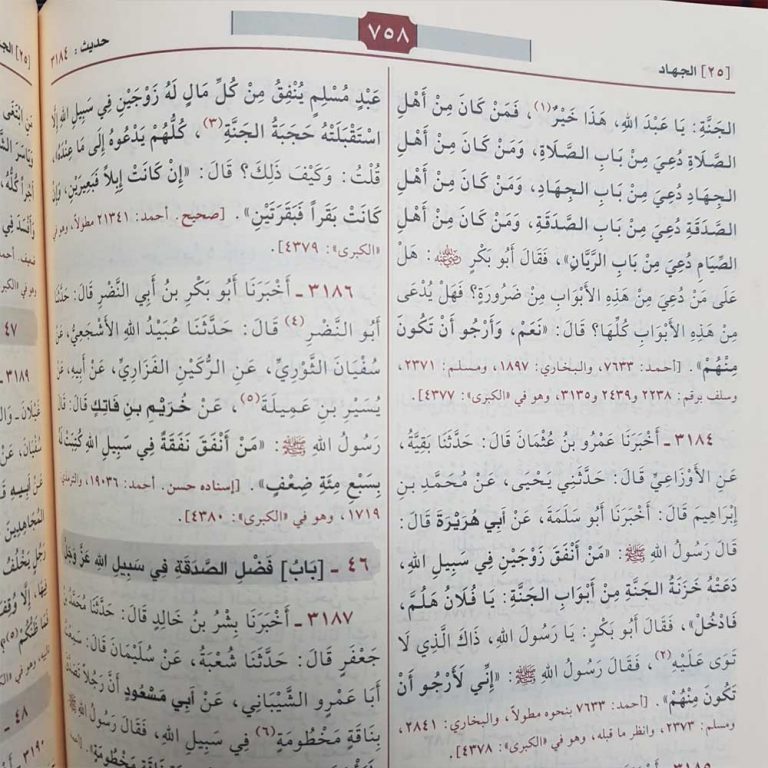 [٢٥] الجهاد
٧٥٨
حديث: ٣١٨٤
الجَنَّةِ: يَا عَبْدَ اللهِ، هَذَا خَيْرٌ(١)، فَمَنْ كَانَ مِنْ أَهْلِ
الصَّلَاةِ دُعِيَ مِنْ بَابِ الصَّلَاةِ، وَمَنْ كَانَ مِنْ أَهْلِ
الجِهَادِ دُعِيَ مِنْ بَابِ الجِهَادِ، وَمَنْ كَانَ مِنْ أَهْلِ
الصَّدَقَةِ دُعِيَ مِنْ بَابِ الصَّدَقَةِ، وَمَنْ كَانَ مِنْ أَهْلِ
الصِّيَامِ دُعِيَ مِنْ بَابِ الرَّيَّانِ»، فَقَالَ أَبُو بَكْرٍ ﵁: هَلْ
عَلَى مَنْ دُعِيَ مِنْ هَذِهِ الأَبْوَابِ مِنْ ضَرُورَةٍ؟ فَهَلْ يُدْعَى
مِنْ هَذِهِ الأَبْوَابِ كُلِّهَا؟ قَالَ: «نَعَمْ، وَأَرْجُو أَنْ تَكُونَ
مِنْهُمْ». [أحمد: ٧٦٣٣، والبخاري: ١٨٩٧، ومسلم: ٢٣٧١،
وسلف برقم: ٢٢٣٨ و٢٤٣٩ و٣١٣٥، وهو في «الكبرى»: ٤٣٧٧].
٣١٨٤ ـ أَخْبَرَنَا عَمْرُو بْنُ عُثْمَانَ قَالَ: حَدَّثَنَا بَقِيَّةُ،
عَنِ الأَوْزَاعِيِّ قَالَ: حَدَّثَنِي يَحْيَى، عَنْ مُحَمَّدِ بنِ
إِبْرَاهِيمَ قَالَ: أَخْبَرَنَا أَبُو سَلَمَةَ، عَنْ أَبِي هُرَيْرَةَ قَالَ:
قَالَ رَسُولُ اللهِ ﷺ: «مَنْ أَنْفَقَ زَوْجَيْنِ فِي سَبِيلِ اللهِ،
دَعَتْهُ خَزَنَةُ الجَنَّةِ مِنْ أَبْوَابِ الجَنَّةِ: يَا فُلَانُ هَلُمَّ،
فَادْخُلْ»، فَقَالَ أَبُو بَكْرٍ: يَا رَسُولَ اللهِ، ذَاكَ الَّذِي لَا
تَوَى عَلَيْهِ(٢)، فَقَالَ رَسُولُ اللهِ ﷺ: «إِنِّي لَأَرْجُو أَنْ
تَكُونَ مِنْهُمْ». [أحمد: ٧٦٣٣ بنحوه مطولاً، والبخاري: ٢٨٤١،
ومسلم: ٢٣٧٣، وانظر ما قبله، وهو في «الكبرى»: ٤٣٧٨].
عَبْدٍ مُسْلِمٍ يُنْفِقُ مِنْ كُلِّ مَالٍ لَهُ زَوْجَيْنِ فِي سَبِيلِ اللهِ إِلَّا
اسْتَقْبَلَتْهُ حَجَبَةُ الجَنَّةِ(٣)، كُلُّهُمْ يَدْعُوهُ إِلَى مَا عِنْدَهُ»،
قُلْتُ: وَكَيْفَ ذَلِكَ؟ قَالَ: «إِنْ كَانَتْ إِبِلاً فَبَعِيرَيْنِ، وَإِنْ
كَانَتْ بَقَراً فَبَقَرَتَيْنِ». [صحيح. أحمد: ٢١٣٤١ مطولاً، وهو في
«الكبرى»: ٤٣٧٩].
٣١٨٦ ـ أَخْبَرَنَا أَبُو بَكْرِ بنُ أَبِي النَّضْرِ قَالَ: حَدَّثَنَا
أَبُو النَّضْرِ(٤) قَالَ: حَدَّثَنَا عُبَيْدُ اللهِ الأَشْجَعِيُّ، عَنْ
سُفْيَانَ الثَّوْرِيِّ، عَنِ الرُّكَيْنِ الفَزَارِيِّ، عَنْ أَبِيهِ، عَنْ
يُسَيْرِ بنِ عَمِيلَةَ(٥)، عَنْ خُرَيْمِ بنِ فَاتِكٍ قَالَ: قَالَ
رَسُولُ اللهِ ﷺ: «مَنْ أَنْفَقَ نَفَقَةً فِي سَبِيلِ اللهِ كُتِبَتْ لَهُ
بِسَبْعِ مِئَةِ ضِعْفٍ». [إسناده حسن. أحمد: ١٩٠٣٦، والترمذي:
١٧١٩، وهو في «الكبرى»: ٤٣٨٠].
٤٦ ـ [بَابُ] فَضْلِ الصَّدَقَةِ فِي سَبِيلِ اللهِ عَزَّ وَجَلَّ
٣١٨٧ ـ أَخْبَرَنَا بِشْرُ بنُ خَالِدٍ قَالَ: حَدَّثَنَا مُحَمَّدُ بنُ
جَعْفَرٍ قَالَ: حَدَّثَنَا شُعْبَةُ، عَنْ سُلَيْمَانَ قَالَ: سَمِعْتُ
أَبَا عَمْرٍو الشَّيْبَانِيَّ، عَنْ أَبِي مَسْعُودٍ أَنَّ رَجُلاً تَصَدَّقَ
بِنَاقَةٍ مَخْطُومَةٍ(٦) فِي سَبِيلِ اللهِ، فَقَالَ رَسُولُ اللهِ ﷺ
٤٧
٣١٨٩
٤٨ ـ
٣١٩٠